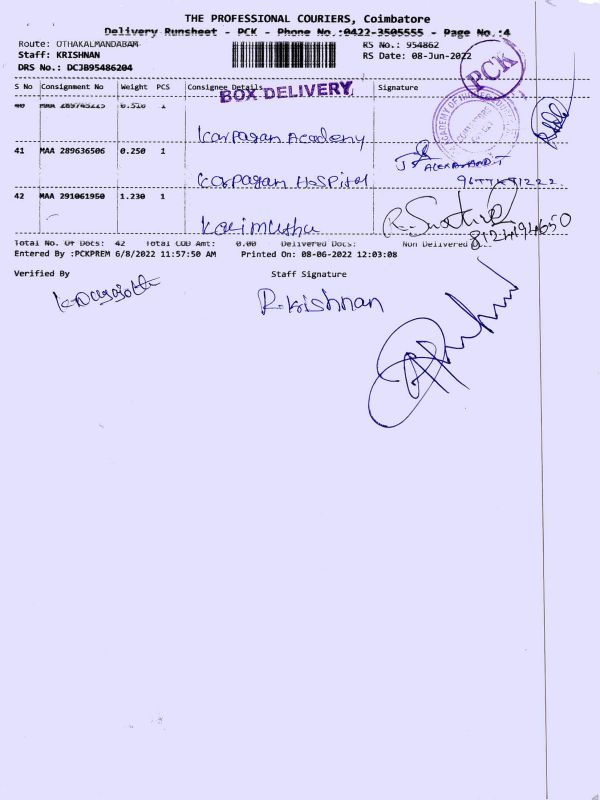 THE PROFESSIONAL COURIERS, Coimbatore
Delivery Runsheet - PCK - Phone No.:0422-3505555 - Page No.:4
Route: OTHAKALMANDABAM
Staff: KRISHNAN
DRS No.: DCJB95486204
RS No.: 954862
RS Date: 08-Jun-2022
PCK
S No Consignment No Weight PCS Consignee Details Signature
BOX DELIVERY
40 MAA 289745225 0.510 1
Karpagan Academy
41 MAA 289636506 0.250 1
Karpagan Hospital
42 MAA 291061950 1.230 1
Karimuthu
8124194650
Total No. Of Docs: 42 Total COD Amt: 0.00 Delivered Docs: Non Delivered
Entered By :PCKPREM 6/8/2022 11:57:50 AM Printed On: 08-06-2022 12:03:08
Verified By Staff Signature
R. Krishnan